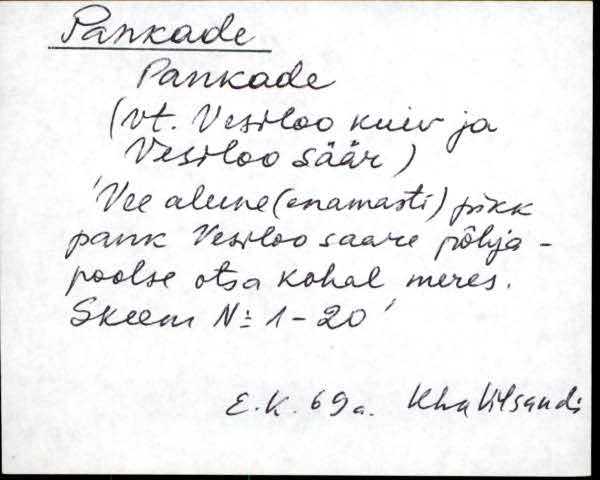 Pankade
Pankade
(vt. Vesiloo kuiv ja
Vesiloo säär)
'Vee alune (enamasti) pikk
pank Vesiloo saare põhja-
poolse otsa kohal meres.
Skeem № 1-20'
E.K. 69a. Kha Vilsandi